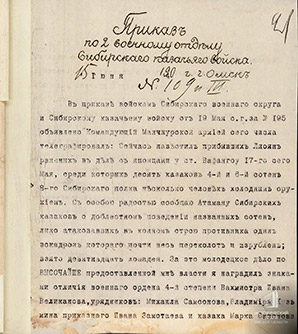 Приказъ
по 2 военному отдѣлу
Сибирскаго казачьяго войска.
15 Іюня 190 г. г. Омскъ
№ 109
Въ приказѣ войскамъ Сибирскаго военнаго округа
и Сибирскому казачьему войску отъ 19 Мая с.г. за № 195
объявлено: Командующій Манчжурской арміей сего числа
телеграфировалъ: Сейчасъ навѣстилъ прибывшихъ
раненыхъ въ дѣлѣ съ японцами у ст. Вафангоу 17-го сего
Мая, среди которыхъ десять казаковъ 4-й и 6-й сотенъ
8-го Сибирскаго полка нѣсколько человѣкъ холоднымъ ору-
жіемъ. Съ особою радостью сообщаю Атаману Сибирскихъ
казаковъ о доблестномъ поведеніи названныхъ сотенъ,
лихо атаковавшихъ въ конномъ строю противника одинъ
эскадронъ котораго почти весь переколотъ и изрубленъ;
взято девятнадцать лошадей. За это молодецкое дѣло по
ВЫСОЧАЙШЕ предоставленной мнѣ власти я наградилъ знака-
ми отличія военнаго ордена 4-й степени Вахмистра Ивана
Великанова, урядниковъ: Михаила Самсонова, Владиміра
мина приказнаго Ивана Замотаева и казака Марка